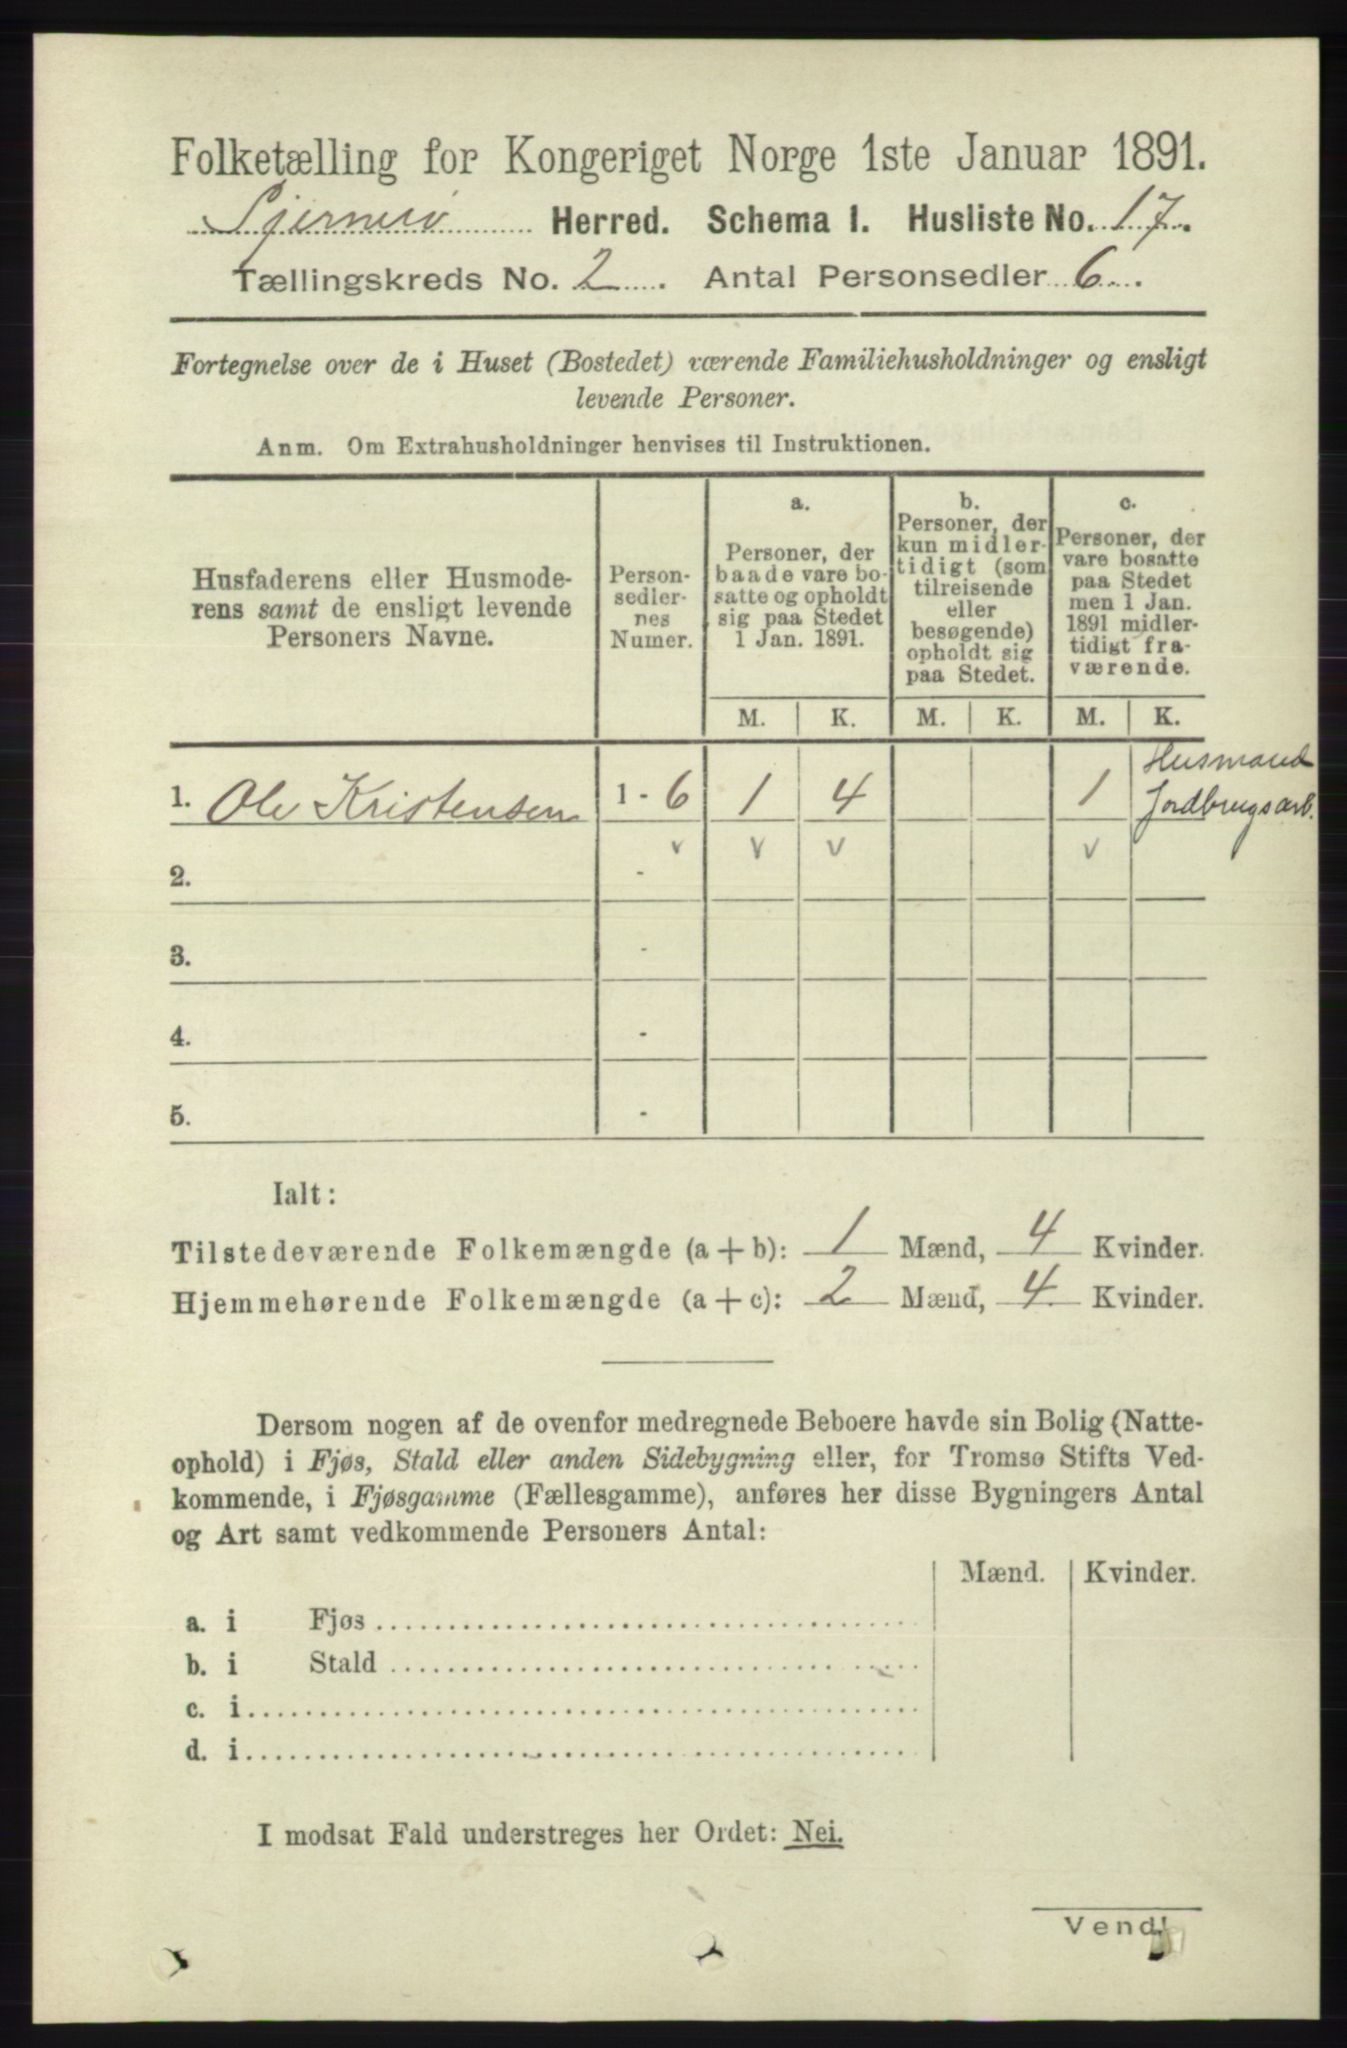 Folketælling for Kongeriget Norge 1ste Januar 1891.
Sjernerø Herred. Schema 1. Husliste No. 17.
Tællingskreds No. 2. Antal Personsedler 6.
Fortegnelse over de i Huset (Bostedet) værende Familiehusholdninger og ensligt
levende Personer.
Anm. Om Extrahusholdninger henvises til Instruktionen.
Husfaderens eller Husmode-
rens samt de ensligt levende
Personers Navne.
Person-
sedler-
nes
Numer.
a.
Personer, der
baade vare bo-
satte og opholdt
sig paa Stedet
1 Jan. 1891.
b.
Personer, der
kun midler-
tidigt (som
tilreisende
eller
besøgende)
opholdt sig
paa Stedet.
c.
Personer, der
vare bosatte
paa Stedet
men 1 Jan.
1891 midler-
tidigt fra-
værende.
M. K. M. K. M. K.
1. Ole Kristensen 1 - 6 1 4 1 Husmand
Jordbrugsarb.
v v v v
2. -
3. -
4. -
5. -
Ialt:
Tilstedeværende Folkemængde (a+b): 1 Mænd, 4 Kvinder.
Hjemmehørende Folkemængde (a+c): 2 Mænd, 4 Kvinder.
Dersom nogen af de ovenfor medregnede Beboere havde sin Bolig (Natte-
ophold) i Fjøs, Stald eller anden Sidebygning eller, for Tromsø Stifts Ved-
kommende, i Fjøsgamme (Fællesgamme), anføres her disse Bygningers Antal
og Art samt vedkommende Personers Antal:
Mænd. Kvinder.
a. i Fjøs
b. i Stald
c. i
d. i
I modsat Fald understreges her Ordet: Nei.
Vend!